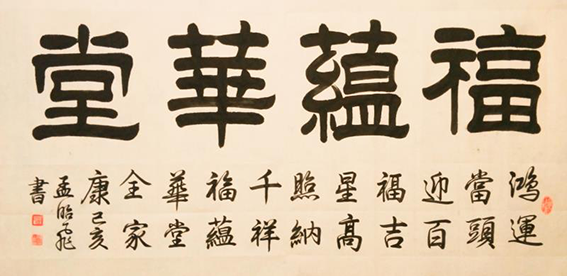 福蘊華堂
鴻運
當頭
迎百
福吉
星高
照納
千祥
福蘊
華堂
全家
康己亥
孟昭飛
書